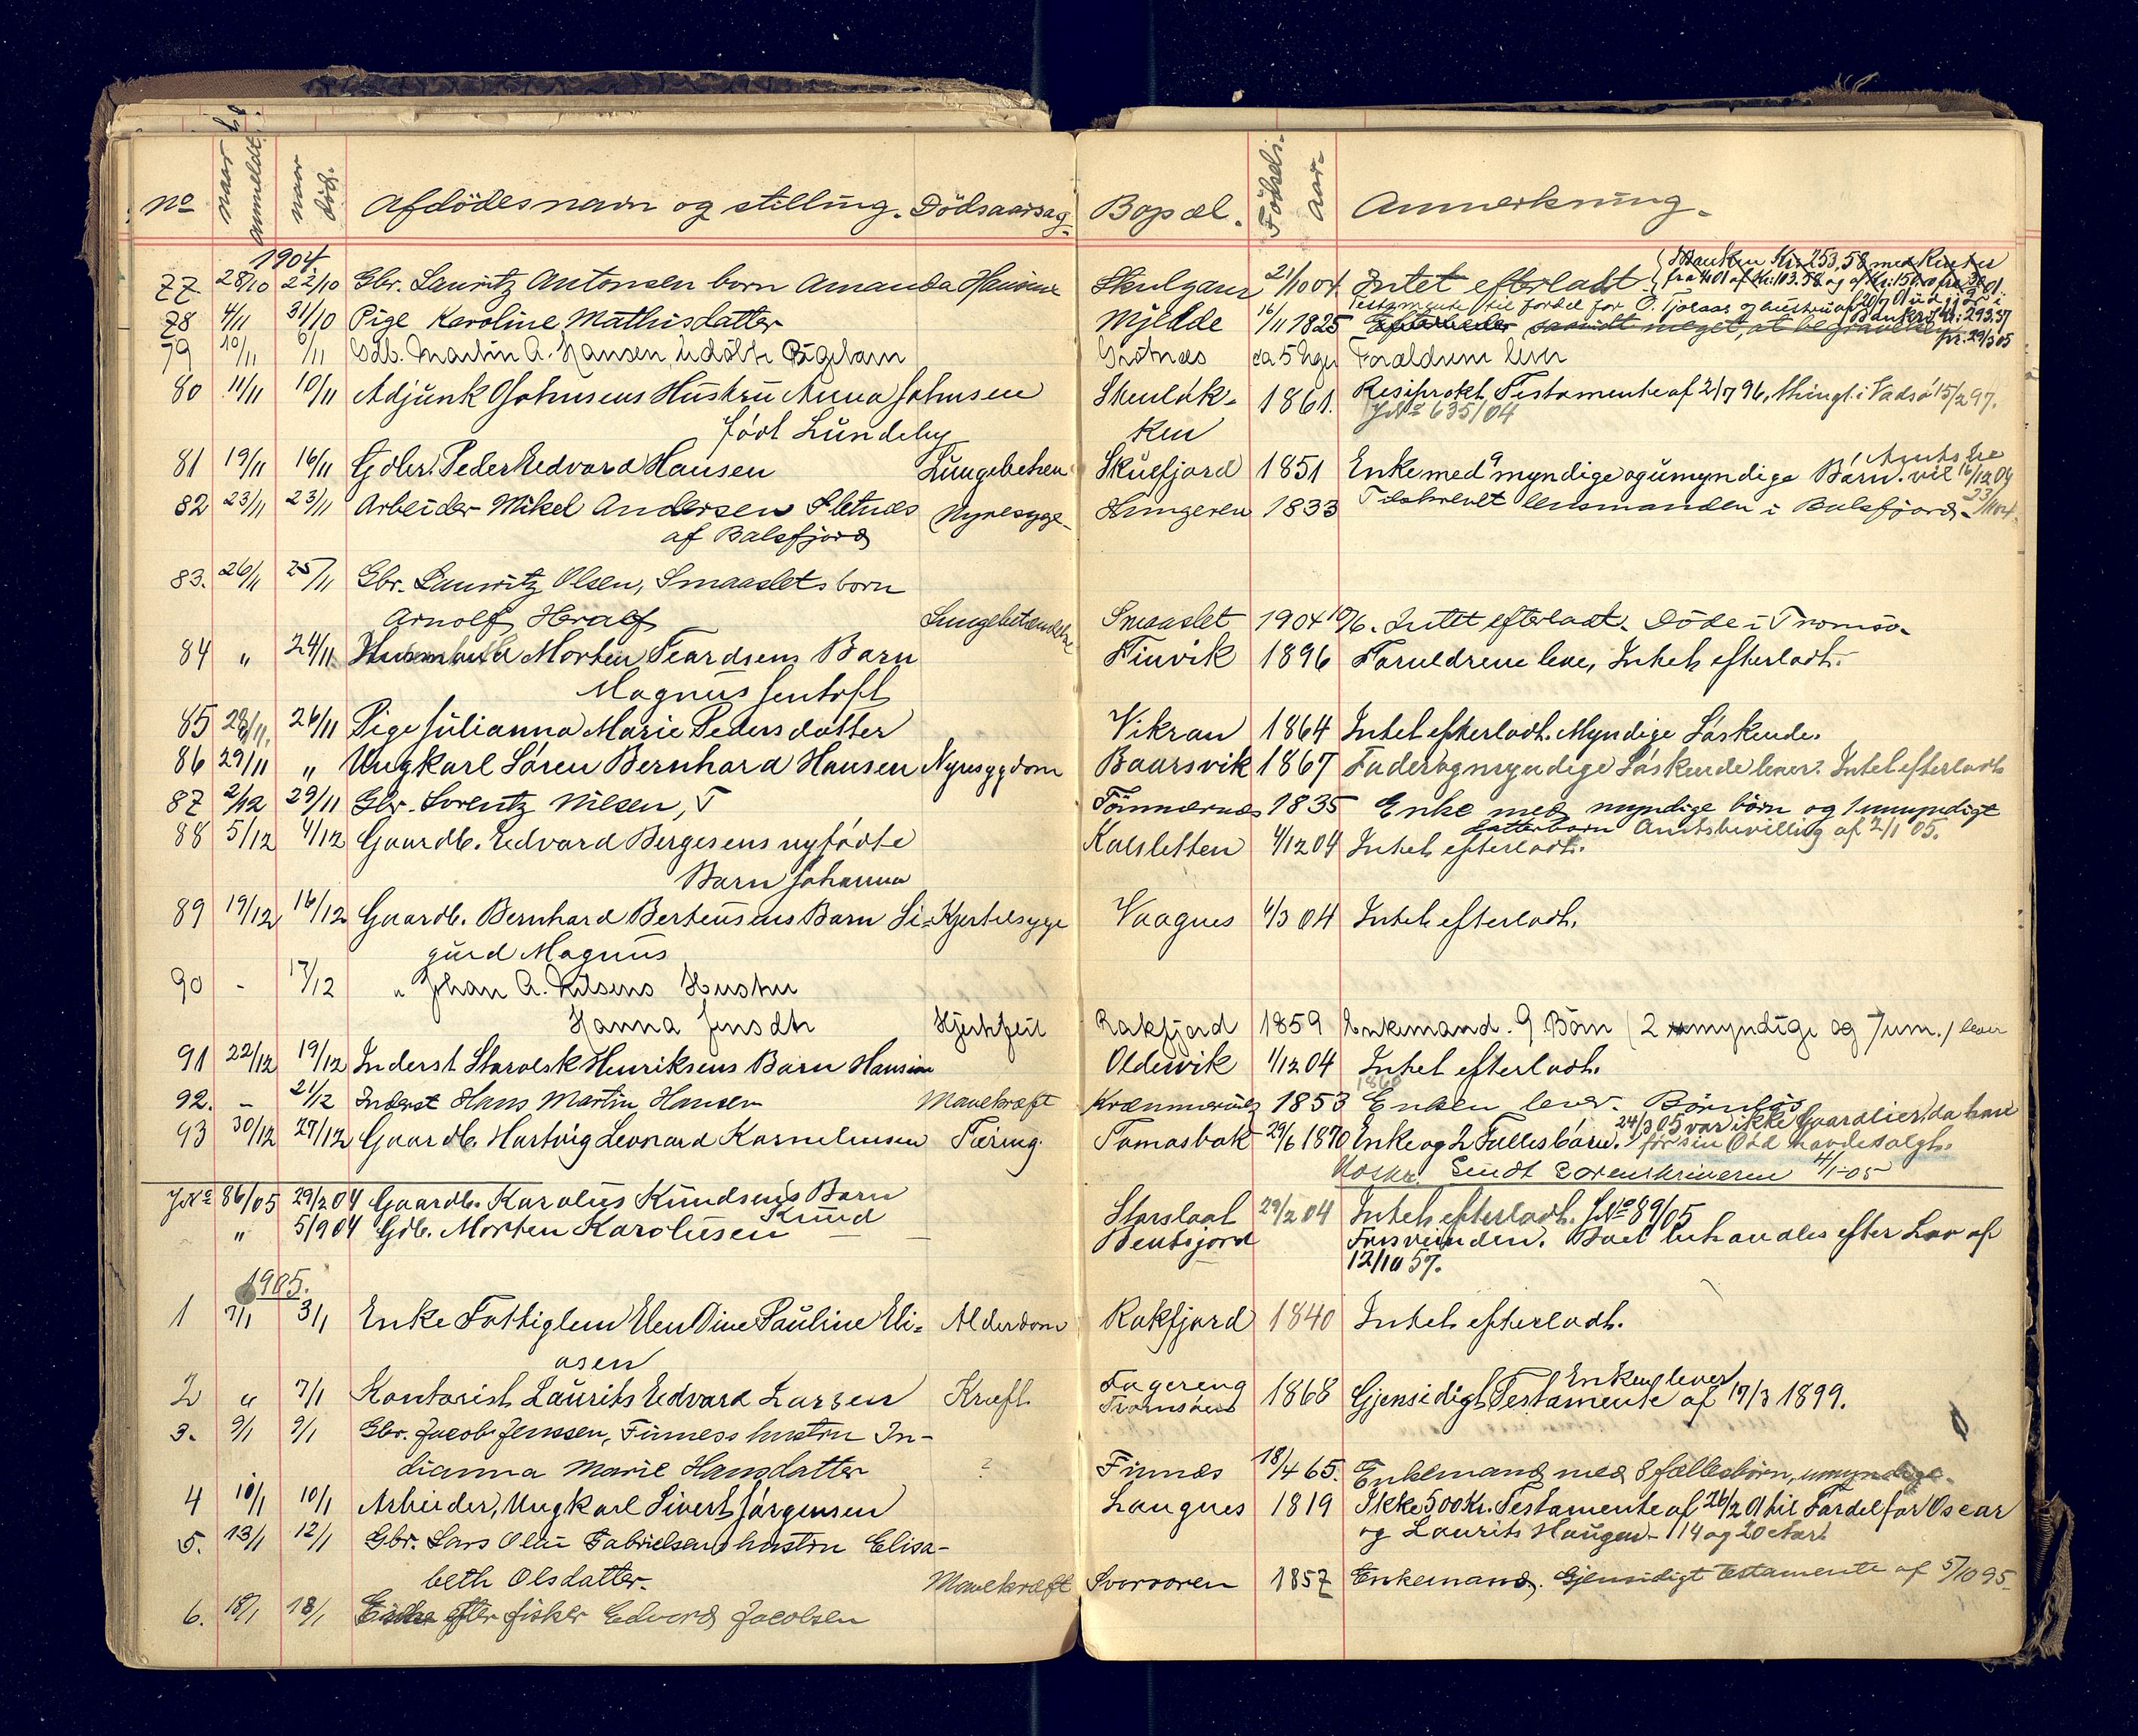 No naar anmeldt. naar död. Afdödes navn og stilling. Dödsaarsag. Bopæl. Födsels-aar. Anmerkning.
1904
77 28/10 22/10 Gbr. Lauritz Antonsen born Amanda Hansine Skulgam 21/10 04 Intet efterladt.
Banken Kr: 253,58 med Renter
78 4/11 31/10 Pige Karoline Mathisdatter Mjelde 16/11 1825
Testamente til fordel for
79 10/11 6/11 Gdb. Martin A. Hansen udöbt Pigebarn Grötnes ca 5 Dage Forældrene lever
80 11/11 10/11 Adjunk O Johnsens Hustru Anna Johnsen 1861. Resiprokt Testamente af 2/7 96, thingl. i Vadsö 15/2 97.
född Lundeby JNo 635/04
81 19/11 16/11 Gdbr. Peder Edvard Hansen Lungebeten Skulfjord 1851 Enke med 9 myndige og umyndige Börn. 16/12 04
82 23/11 23/11 Arbeider Mikel Andersen Sletnes Nyresyge Hungeren 1833 Tilskrevet lensmanden i Balsfjord 23/11 04.
af Balsfjord
83. 26/11 25/11 Gbr. Lauritz Olsen, Smaaslets born
Arnolf, Heralf Lungebetændelse Smaaslet 1904 10/6. Intet efterladt. Döde i Tromsö.
84 " 24/11 Morten Feardsens Barn Finvik 1896 Forældrene leve, Intet efterladt.
Magnus Jentoft
85 28/11. 26/11 Pige Julianna Marie Pedersdatter Vikran 1864 Intet efterladt. Myndige Söskende.
86 29/11 " Ungkarl Sören Bernhard Hansen Nyresygdom Baarsvik 1867 Fader og myndige Söskende lever. Intet efterladt
87 2/12 29/11 Gbr. Lorentz Nilsen, T Tömmernes 1835 Enke med myndige börn og 1 umyndigt
datterbarn Amtsbevilling af 2/1 05.
88 5/12 4/12 Gaardb. Edvard Bergesens nyfödte Kalsletten 4/12 04 Intet efterladt.
Barn Johanna
89 19/12 16/12 Gaardb. Bernhard Bertensens Barn Si= Kjertelsyge Vaagnes 4/3 04 Intet efterladt.
gurd Magnus
90 - 17/12 " Johan A. Nilsens Hustru
Hanna Jensdtr Hjertfeil Rakfjord 1859 Enkemand. 9 Börn (2 myndige og 7 um.) lever
91 22/12 19/12 Inderst Storolsk Henriksens Barn Hansine Oldervik 1/12 04 Intet efterladt.
92. - 21/12 Inderst Hans Martin Hansen Mavekræft 1853 Enken lever. Börnlös
1860
93 30/12 27/12 Gaardb. Hartvig Leonard Kornelinsen Tæring. Tomasbak 29/6 1870 Enke og 2 Fællesbörn. 24/3 05 var ikke Gaardeier, da han
för sin Död havde solgt.
Sendt Sorenskriveren 4/1-05
JNo 86/05 29/2 04 Gaardb. Karolius Knudsens Barn Storslaat 29/2 04 Intet efterladt. JNo 89/05
Knud
" 5/9 04 Gdb. Morten Karolusen Bentsjord Forsvunden. Boet behandles efter Lov af
12/10 57.
1905.
1 7/1 3/1 Enke Fattiglem Elen Oine Pauline Eli= Alderdom Rakfjord 1840 Intet efterladt.
asen
2 " 7/1 Kontorist Laurits Edvard Larsen Kræft. Fagereng 1868 Gjensidigt Testamente af 17/3 1899.
Tromsöund Enken lever
3. 9/1 9/1 Gbr. Jacob Jenssen, Finness hustru In-
dianna Marie Hansdatter ? Finnes 18/4 65. Enkemand med 8 fællesbörn, umyndige.
4 10/1 10/1 Arbeider, Ungkarl Sivert Jörgensen Langnes 1819 Ikke 500 Kr. Testamente af 26/2 01 til Fordel for Oscar
og Laurits Haugen - 14 og 20 Aar.
5. 13/1 12/1 Gbr. Lars Olai Gabrielsens hustru Elisa-
beth Olsdatter. Mavekræft Svarvaren 1857 Enkemand. Gjensidigt testamente af 5/10 95.
6. 18/1 18/1 Enke efter fisker Edvard Jacobsen